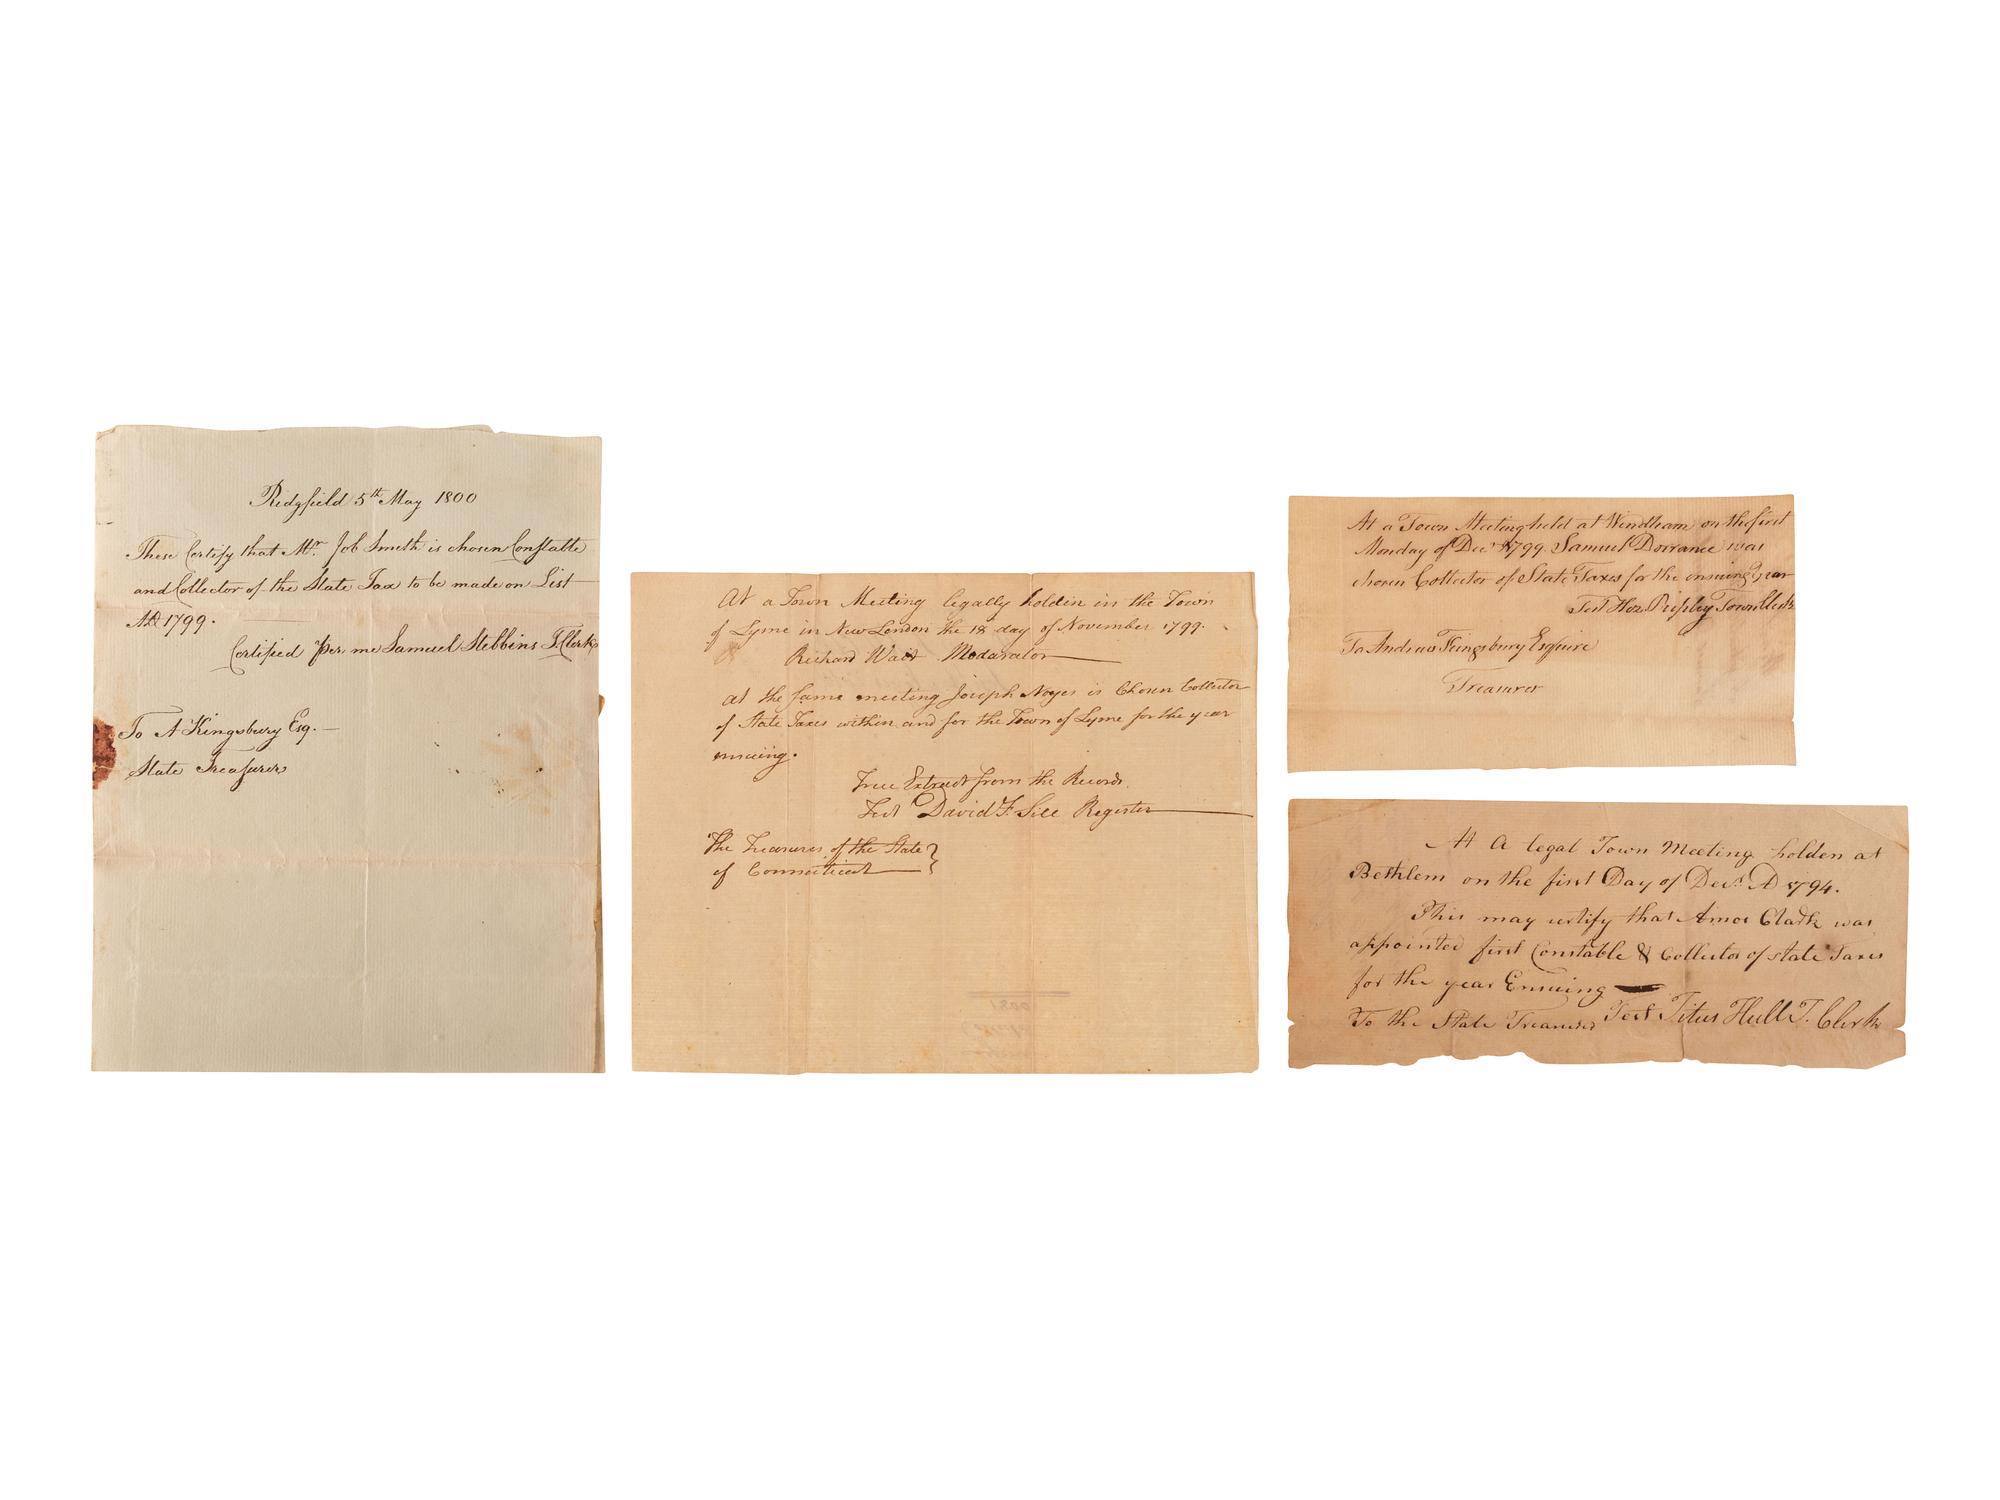 Ridgfield 5th May 1800
These Certify that Mr. Job Smith is chosen Constable
and Collector of the State Tax to be made on List
AD 1799.
Certified Per me Samuel Stebbins T. Clerk
To A Kingsbury Esq.
State Treasurer
At a Town Meeting legally holdin in the Town
of Lyme in New London the 18 day of November 1799.
Richard Wait Modarator
at the same meeting Joseph Noyes is Chosen Collector
of State Taxes within and for the Town of Lyme for the year
ensueing.
True Extract from the Records.
Test David F. Sill Register
The Treasurer of the State
of Connecticut
At a Town Meeting held at Windham on the first
Monday of Decr 1799. Samuel Dorrance was
chosen Collector of State Taxes for the ensuing year
Test Hez. Ripley Town Clerk
To Andrew Kingsbury Esquire
Treasurer
At A legal Town Meeting holden at
Bethlem on the first Day of Decr. AD 1794.
This may certify that Amos Clark was
appointed first Constable & Collector of state Taxes
for the year Ensuing
To the State Treasurer Test Titus Hull T. Clerk